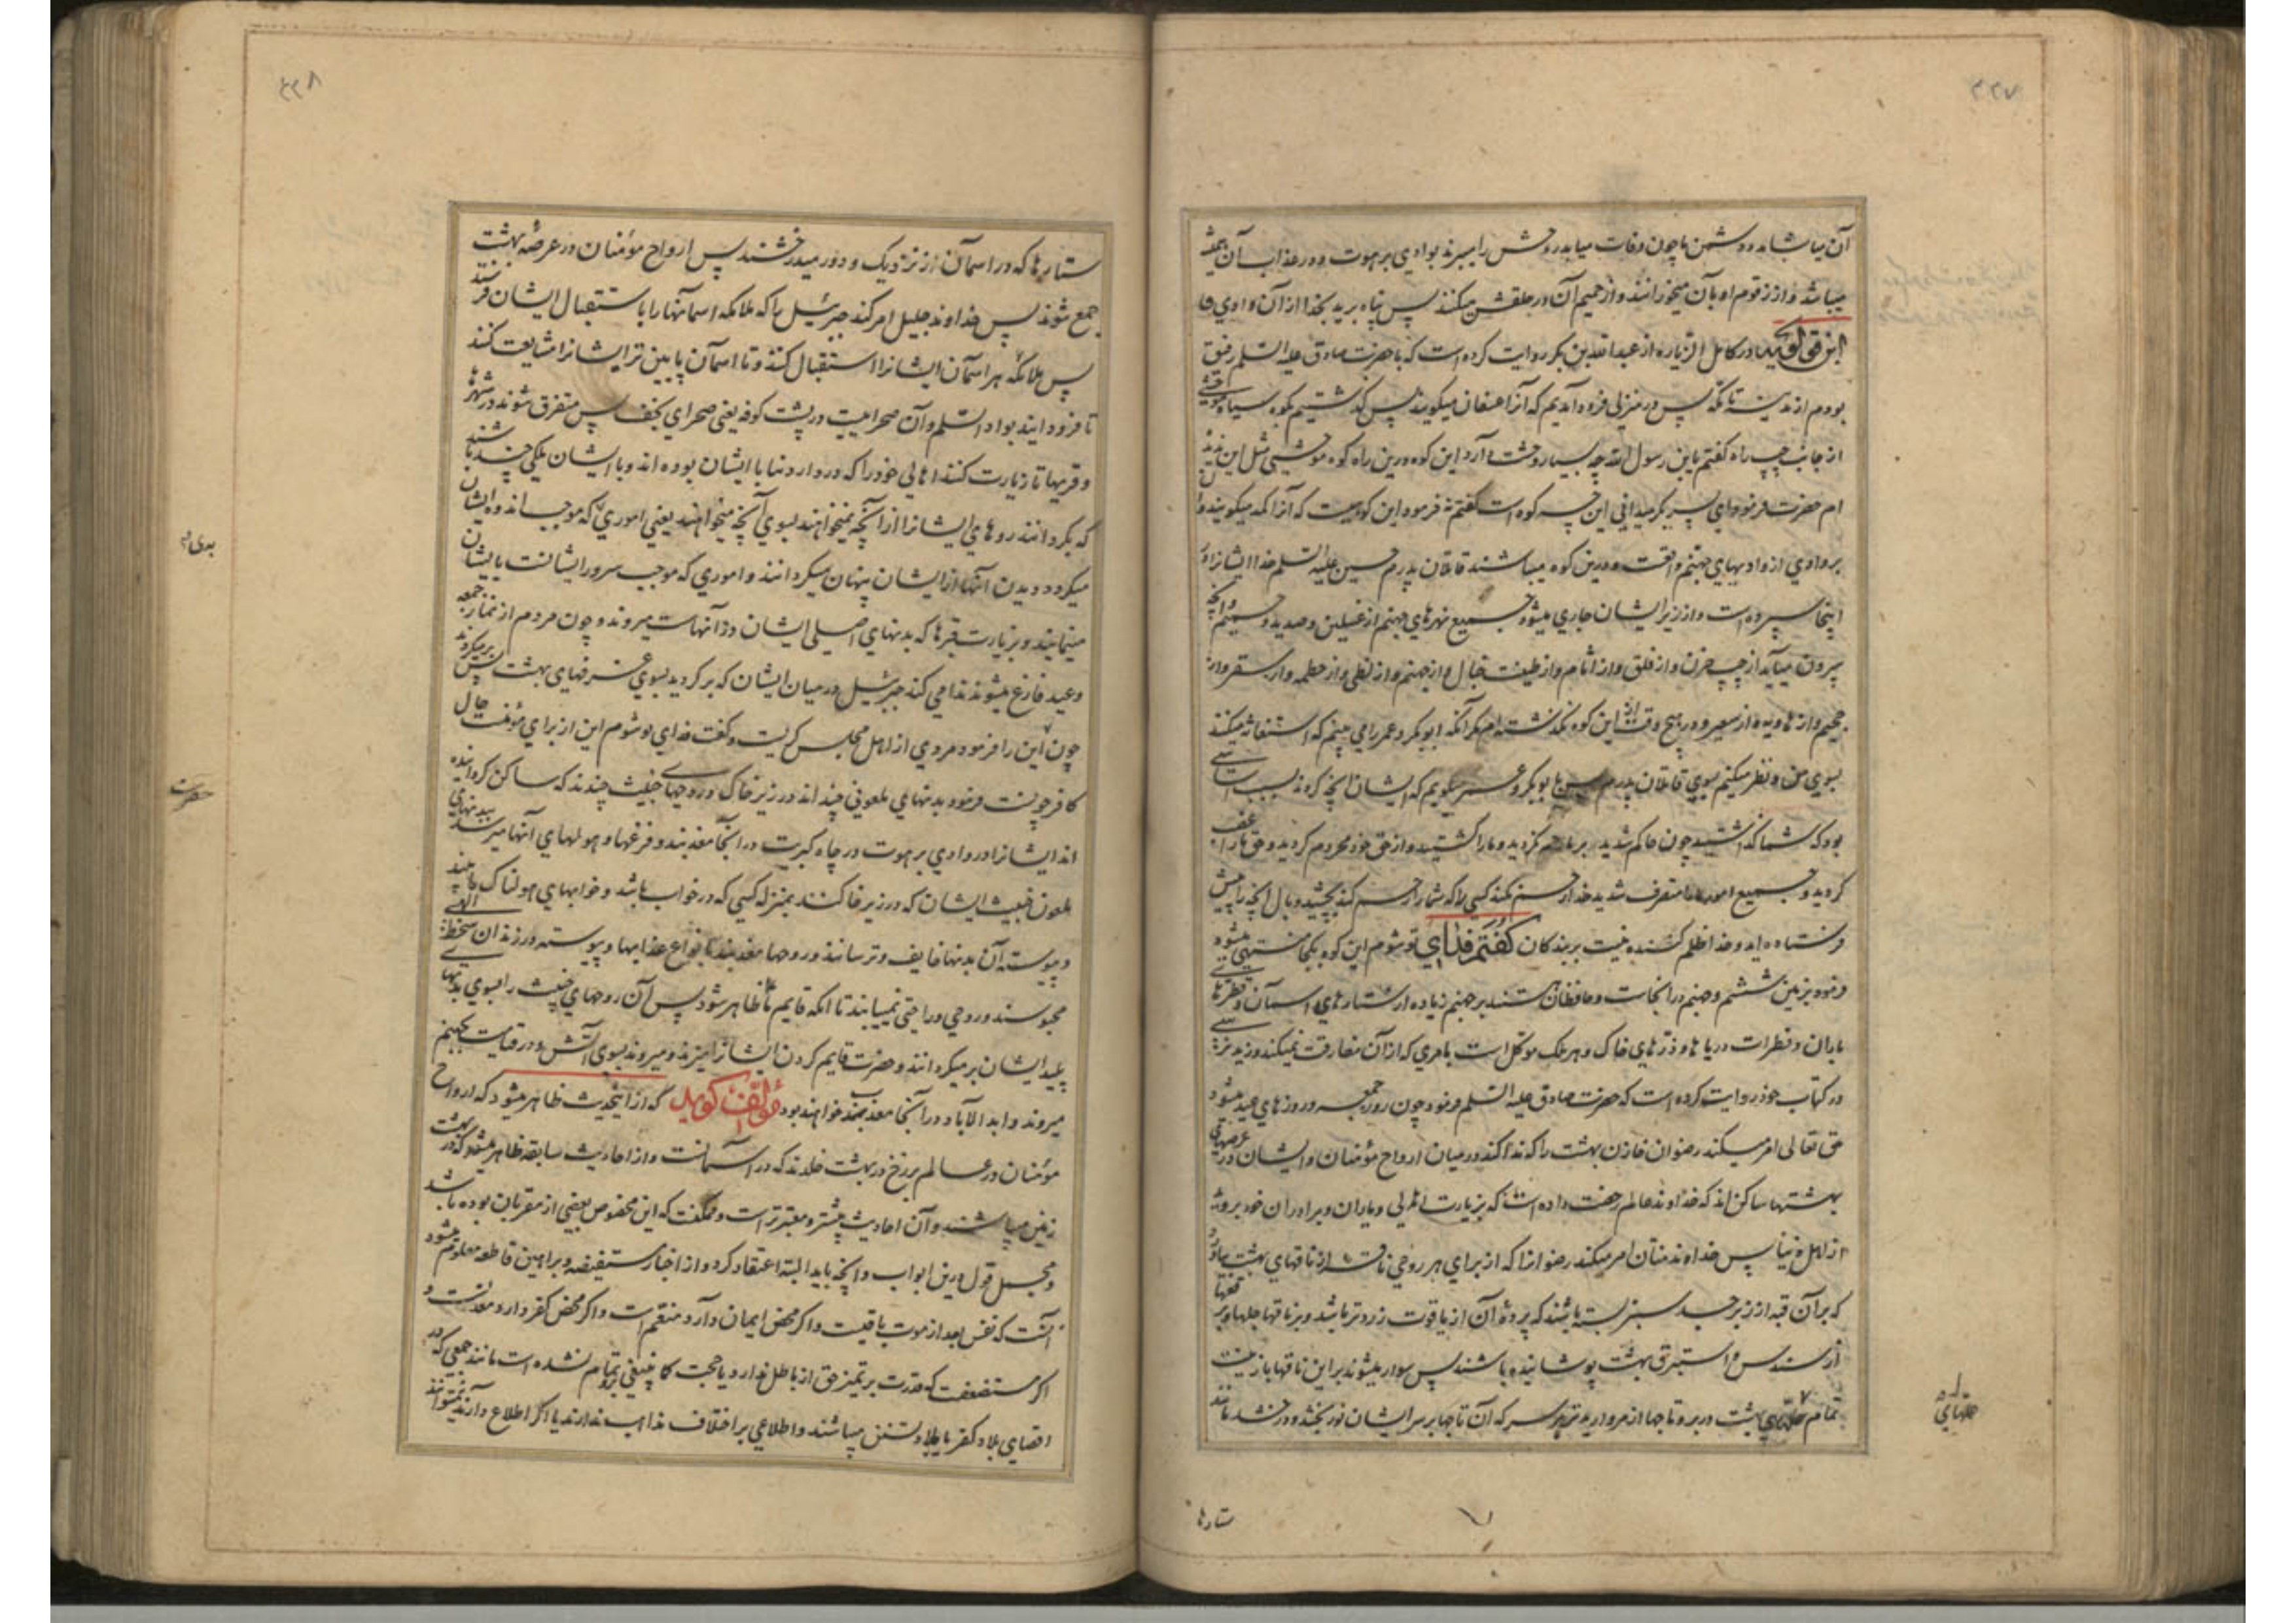 ۲۲۷
آن میاشامد و دشمن ما چون وفات میابد روحش را میبرند بوادی برهوت و در عذاب آن همیشه
میباشد و از زقوم او بآن میخورانند و از حمیم آن در حلقش میکنند پس پناه برید بخدا از آن وادی و
ابن قولویه در کامل الزیاره از عبدالله بن بکر روایت کرده است که با حضرت صادق علیه السلم رفیق
بودم از مدینه تا مکه پس در منزلی فرود آمدیم که آنرا عسفان میکویند پس کذشتیم بکوه سیاه موحشی
از جانب چپ راه کفتم یابن رسول الله چه بسیار وحشت دارد این کوه و درین راه کوه موحشی مثل این ندیده
ام حضرت فرمود ای پسر بکر میدانی این چه کوه است کفتم نه فرمود این کوهیست که آنرا کمد میکویند و
بر وادی از وادیهای جهنم واقعست و درین کوه میباشند قاتلان پدرم حسین علیه السلم خدا ایشانرا در
اینجا سپرده است و از زیر ایشان جاری میشود جمیع نهرهای جهنم از غسلین و صدید و حمیم و آنچه
بیرون میآید از چب حزن و از فلق و از اثام و از طینت خبال و از جهنم و از لظی و از حطمه و از سقر و از
جحیم و از هاویه و از سعیر و در هیچ وقت از این کوه نکذشته ام مکر آنکه ابوبکر و عمر را می بینم که استغاثه میکنند
بسوی من و نظر میکنم بسوی قاتلان پدرم پس با بوبکر و عمر میکویم که ایشان آنچه کردند بسبب اساسی
بود که شما کذاشتید چون حاکم شدید بر ما رحم نکردید و ما را کشتید و از حق خود محروم کردید و حق ما را غصب
کردید و جمیع امور ما را متصرف شدید خدا رحم نکند کسی را که شما را رحم کند بچشید وبال آنچه را پیش
فرستاده اید و خدا ظلم کننده نیست بر بندکان کفتم فدای تو شوم این کوه بکجا منتهی میشود
فرمود بزمین ششم و جهنم در آنجاست و حافظان هستند بر جهنم زیاده از ستارهای اسمان و قطرهای
باران و قطرات دریاها و ذرهای خاک و هر ملک موکل است بامری که از آن مفارقت نمیکند و زید نرسی
در کتاب خود روایت کرده است که حضرت صادق علیه السلم فرمود چون روز جمعه و روزهای عید میشود
حق تعالی امر میکند رضوان خازن بهشت را که ندا کند در میان ارواح مؤمنان و ایشان در عرصهای
بهشتها ساکن اند که خداوند عالم رخصت داده است که بزیارت اهالی و یاران و برادران خود بروند
از اهل دنیا پس خداوند منان امر میکند رضوانرا که از برای هر روحی ناقه از ناقهای بهشت بیاورد
که بر آن قبه از زبرجد سبز بسته باشند که پردهٔ آن از یاقوت زرد تر باشد و بر ناقها جلها و برقعها
از سندس و استبرق بهشت پوشانیده باشند پس سوار میشوند بر این ناقها با زینت
تمام حلهای بهشت در بر و تاجها از مروارید تر بر سر که آن تاجها بر سر ایشان نور بخشد و درخشد مانند
حلهای
ستارها
۲۲۸
ستارها که در اسمان از نزدیک و دور میدرخشند پس ارواح مؤمنان در عرصهٔ بهشت
جمع شوند پس خداوند جلیل امر کند جبرئیل را که ملائکه اسمانها را باستقبال ایشان فرستند
پس ملائکه هر اسمان ایشانرا استقبال کنند و تا اسمان پایین تر ایشانرا مشایعت کنند
تا فرود ایند بواد السلم و آن صحراییست در پشت کوفه یعنی صحرای نجف پس متفرق شوند در شهرها
و قریها تا زیارت کنند اهالی خود را که در دار دنیا با ایشان بوده اند و با ایشان ملکی چند باشند
که بکردانند روهای ایشانرا از آنچه نمیخواهند بسوی آنچه میخواهند یعنی اموری که موجب اندوه ایشان
میکردد دیدن آنها از ایشان پنهان میکردانند و اموری که موجب سرور ایشانست بایشان
مینمایند و بزیارت قبرها که بدنهای اصلی ایشان در آنهاست میروند و چون مردم از نماز جمعه
و عید فارغ میشوند ندا می کند جبرئیل در میان ایشان که برکردید بسوی غرفهای بهشت پس برمیکردند
چون این را فرمود مردی از اهل مجلس کریست و کفت فدای تو شوم این از برای مؤمنست حال
کافر چونست فرمود بدنهای ملعونی چند اند در زیر خاک و روحهای خبیث چندند که ساکن کردانیده
اند ایشانرا در وادی برهوت در چاه کبریت در آنجا معذبند و فزعها و هولهای آنها میرسد ببدنهای
ملعون خبیث ایشان که در زیر خاکند بمنزله کسی که در خواب باشد و خوابهای هولناک بیند
و پیوسته آن بدنها خایف و ترسانند و روحها معذبند بانواع عذابها و پیوسته در زندان سخط الهی
محبوسند و روحی و راحتی نمییابند تا انکه قایم ما ظاهر شود پس آن روحهای خبیث را بسوی بدنهای
پلید ایشان برمیکردانند و حضرت قایم کردن ایشانرا میزند و میروند بسوی آتش و در قیامت بجهنم
میروند و ابد الاباد در آنجا معذب خواهند بود مؤلف کوید که از اینحدیث ظاهر میشود که ارواح
مؤمنان در عالم برزخ در بهشت خلدند که در آسمانست و از احادیث سابقه ظاهر میشود که در بهشت
زمین میباشند و آن احادیث بیشتر و معتبرتر است و ممکنست که این مخصوص بعضی از مقربان بوده باشد
و مجمل قول درین ابواب و آنچه باید البته اعتقاد کرد و از اخبار مستفیضه و براهین قاطعه معلوم میشود
آنست که نفس بعد از موت باقیست و اکر محض ایمان دارد متنعم است و اکر محض کفر دارد معذبست و
اکر مستضعفست که قدرت بر تمیز حق از باطل ندارد یا حجت کاینبغی برو تمام نشده است مانند جمعی که در
اقصای بلاد کفر یا بلاد تسنن میباشند و اطلاعی بر اختلاف مذاهب ندارند یا اکر اطلاع دارند نمیتوانند
بدی
حضرت